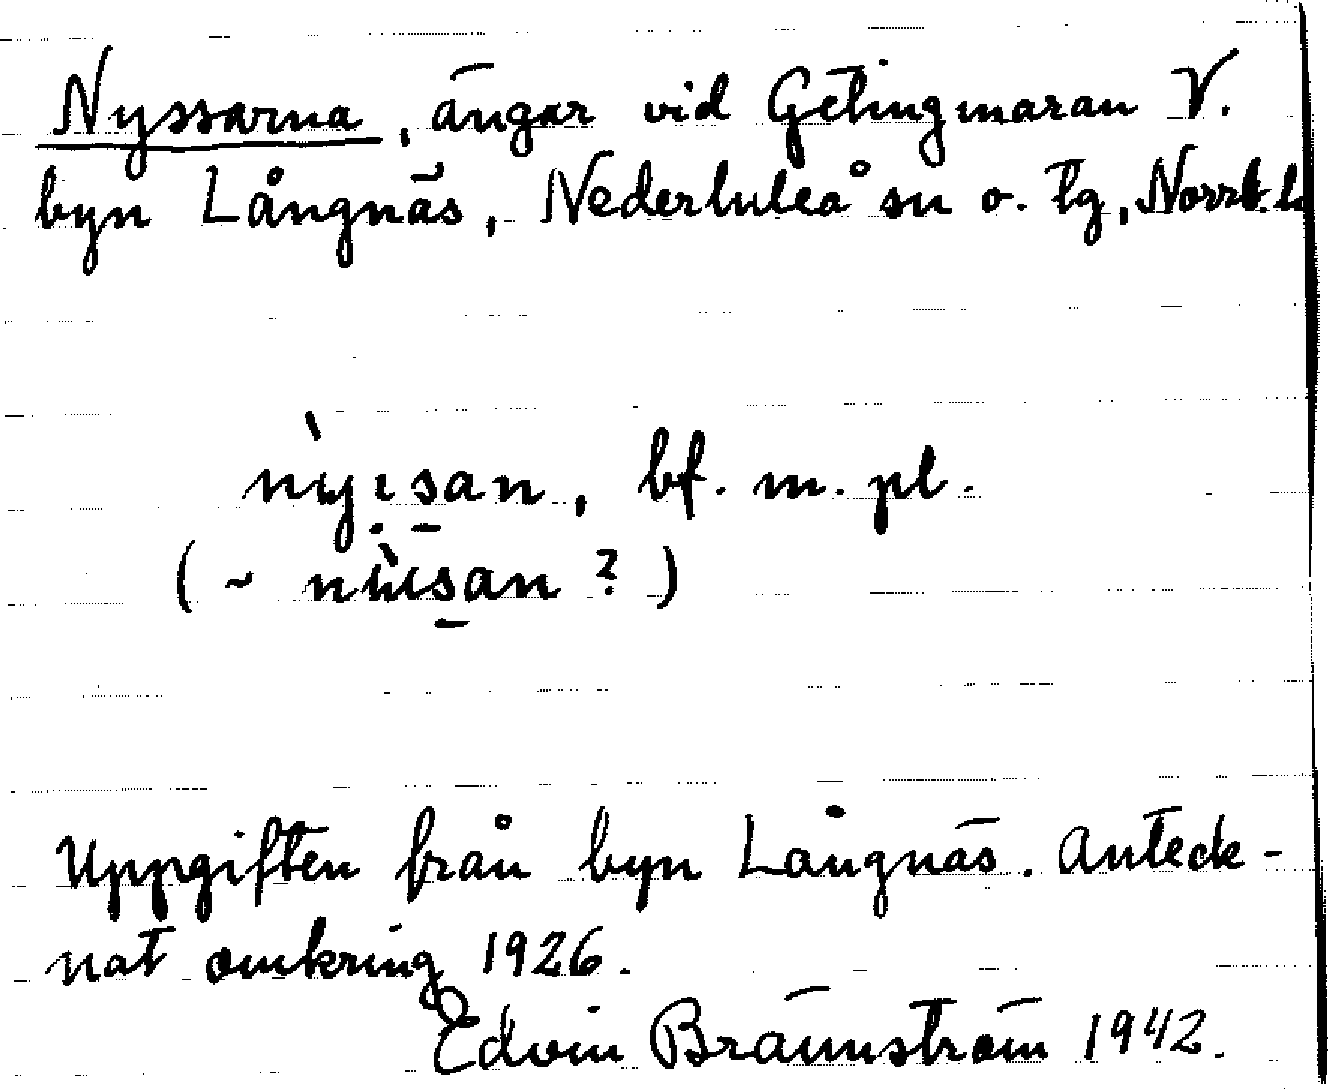 Nyssarna, ängar vid Getingmaran V.
byn Långnäs, Nederluleå sn o. tg, Norrb. l
nỳi̠san, bf. m. pl.
(~ nǜisan ?)
Uppgiften från byn Långnäs. Anteck-
nat omkring 1926.
Edvin Brännström 1942.